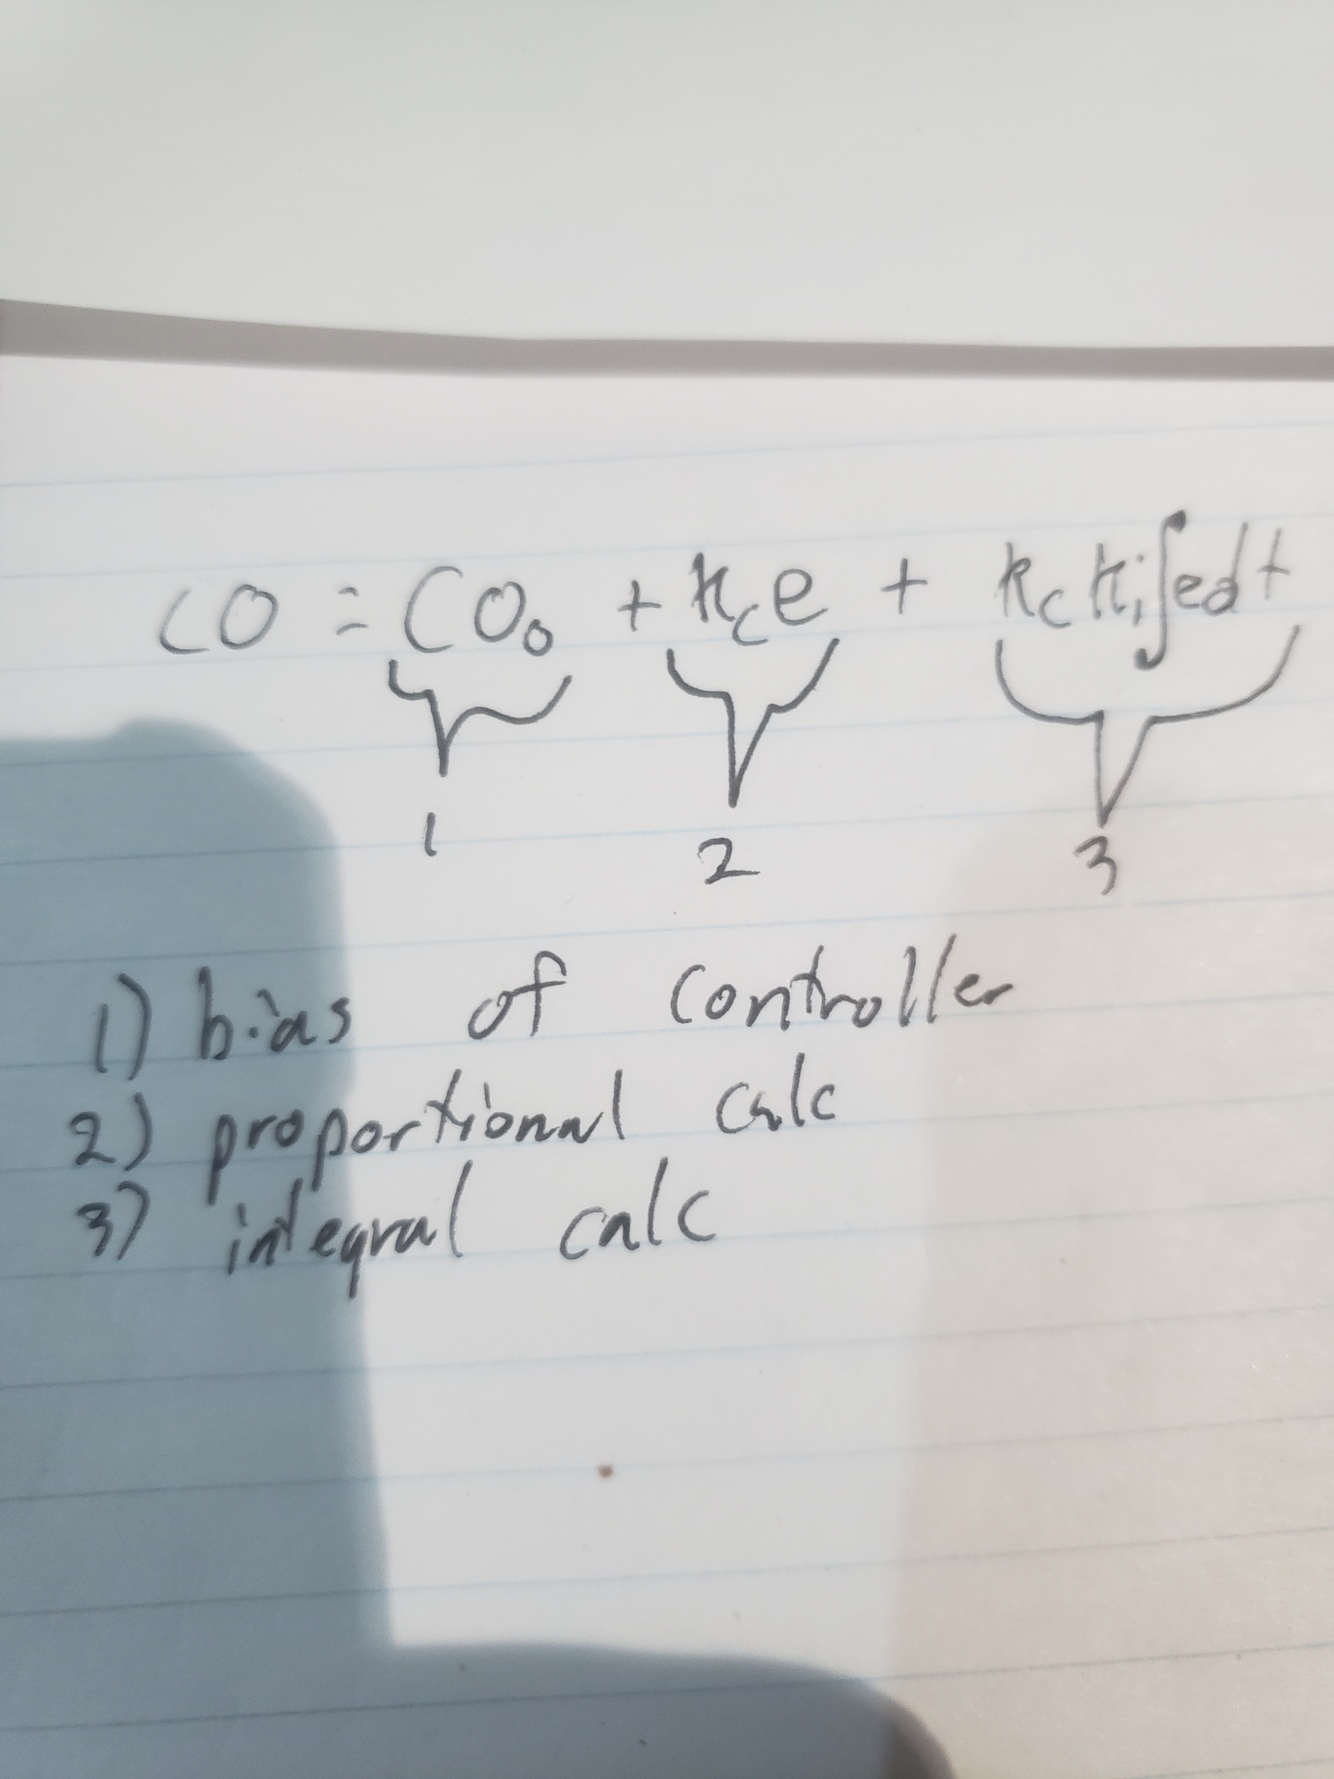 CO = CO₀ + Kce + KcKi∫edt
1 2 3
1) bias of controller
2) proportional calc
3) integral calc